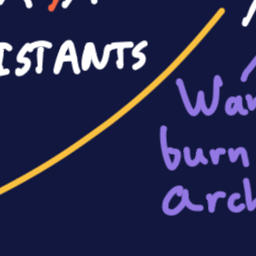 ISTANTS
Wan
burn
arch